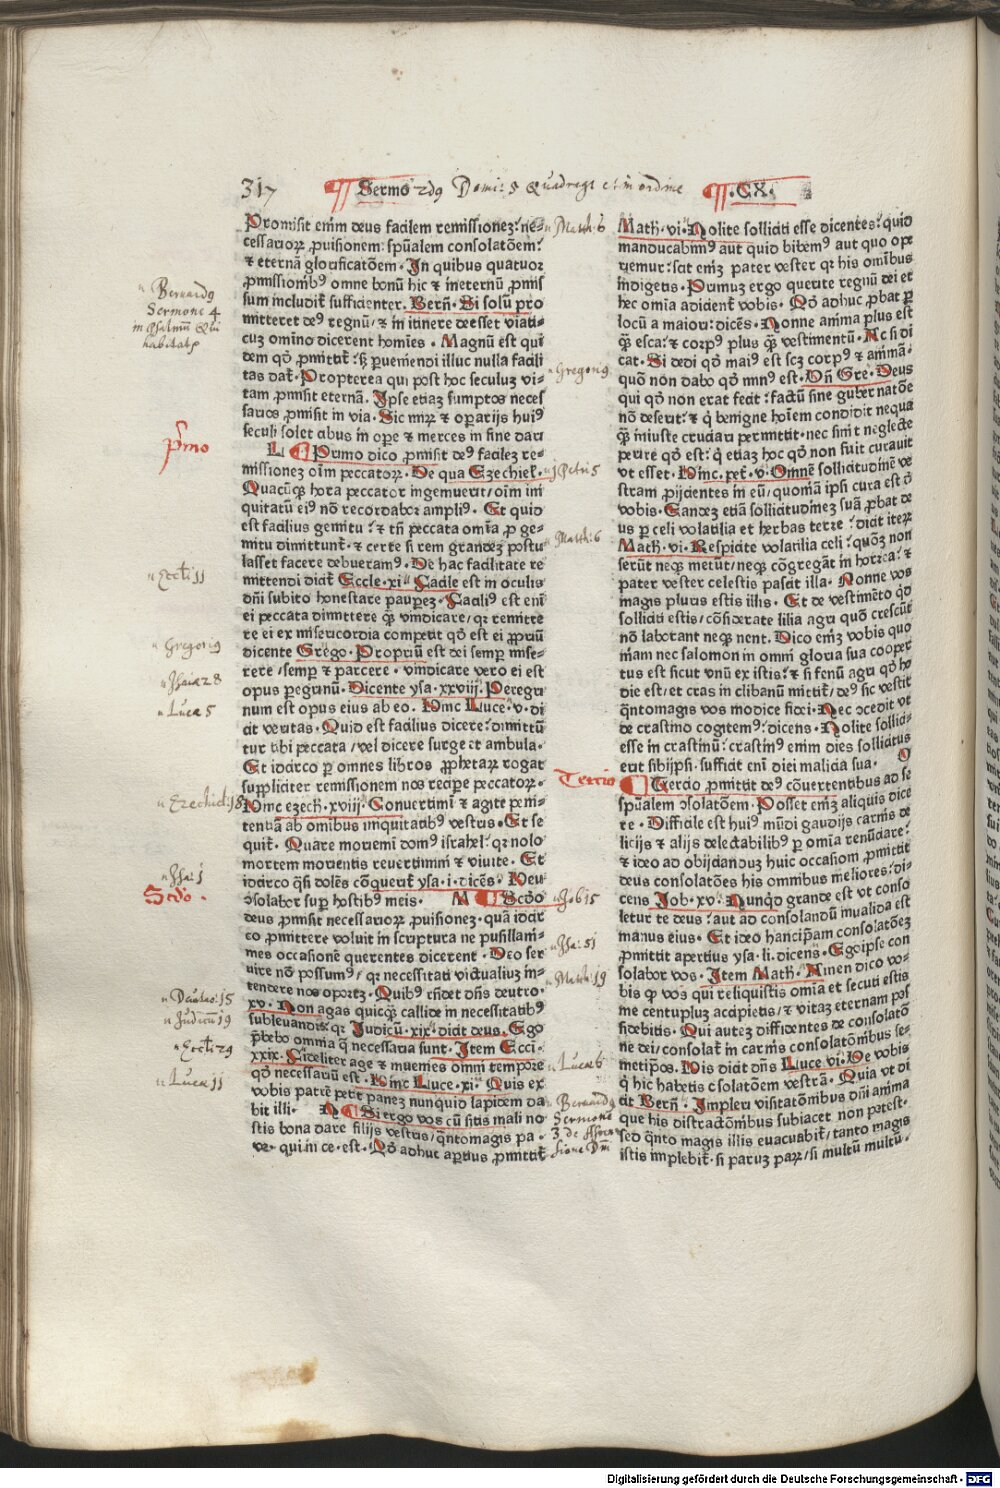 317
Sermo 2dꝰ Domi: 5 Quadrage et in ordine
.CX.
Promisit enim deus facilem remissionez: ne-
cessarioꝝ ꝓuisionem: spũalem consolatõem:
⁊ eternã glorificatõem. In quibus quatuor
ꝓmissionibꝰ omne bonũ hic ⁊ ineternũ ꝓmis
sum includit̃ sufficienter. Berñ. Si solũ pro
mitteret deꝰ regnũ/ ⁊ in itinere deesset viati-
cuz omino dicerent homies. Magnũ est qui
dem qd̓ ꝓmittit̃: sꝫ ꝑueniendi illuc nulla facili
tas dat̃. Propterea qui post hoc seculuz vi-
tam ꝓmisit eternã. Ipse etiaz sumptos neces
sarios ꝓmisit in via. Sic mirꝝ ⁊ oꝑarijs huiꝰ
seculi solet cibus in oꝑe ⁊ merces in fine dari
L Primo dico ꝓmisit deꝰ facilez re-
missionez oĩm peccatoꝝ. De qua Ezechiel.
Quacũqꝫ hora peccator ingemuerit/ oĩm ini
quitatũ eiꝰ nõ recordabor ampliꝰ. Et quid
est facilius gemitu: ⁊ tñ peccata omĩa ꝑ ge-
mitu dimittunt̃. ⁊ certe si rem grandez postu
lasset facere deberamꝰ. De hac facilitate re
mittendi dicit̃ Eccle. xi. Facile est in oculis
dñi subito honestare paupeꝫ. Faciliꝰ est enĩ
ei peccata dimittere qꝫ vindicare/ qꝛ remitte
re ei ex misericordia competit qd̓ est ei ꝓpriũ
dicente Grego. Propriũ est dei semper mise-
rere/ semꝑ ⁊ parcere. vindicare vero ei est
opus peregrinũ. Dicente ysa. xxviij. Peregri
num est opus eius ab eo. Hinc Luce. v. di
cit veritas. Quid est facilius dicere: dimittũ
tur tibi peccata/ vel dicere surge et ambula.
Et idcirco ꝑ omnes libros ꝓphetaꝝ rogat
suppliciter remissionem nos reciꝑe peccatoꝝ.
Hinc ezech. xviij. Conuertimĩ ⁊ agite peni-
tentiã ab omibus iniquitatibꝰ vestris. Et se
quit̃. Quare moriemĩ domꝰ israhel: qꝛ nolo
mortem morientis reuertimini ⁊ viuite. Et
idcirco q̃si dolẽs cõquerit̃ ysa. i. dicẽs. Heu
ↄsolabor suꝑ hostibꝰ meis. M Scd̓o
deus ꝓmisit necessarioꝝ ꝓuisionez. quã idcir
co ꝓmittere voluit in scriptura ne pusillani-
mes occasionẽ querentes dicerent. Deo ser
uire nõ possumꝰ/ qꝛ necessitati victualiuz in-
tendere nos oportꝫ. Quibꝰ rñdet dñs deutro.
xv. Non agas quicqꝫ callide in necessitatibꝰ
subleuandis. qꝛ Judicũ. xix. dicit deus. Ego
p̃bebo omnia q̃ necessaria sunt. Item Ecci.
xxix. Fideliter age ⁊ inuenies omni tempore
qd̓ necessariũ est. Hinc Luce. xi. Quis ex
vobis patrẽ petit panez nunquid lapidem da
bit illi. N Si ergo vos cũ sitis mali no
stis bona dare filijs vestris/ q̃ntomagis pa-
ter qui in ce. est. Qd̓ adhuc aꝑtius ꝓmittit̃
Math. vi. Nolite solliciti esse dicentes: quid
manducabimꝰ aut quid bibemꝰ aut quo oꝑi
riemur: scit enĩꝫ pater vester qꝛ his omibus
indigetis. Primuz ergo querite regnũ dei et
hec omia adicient̃ vobis. Qd̓ adhuc ꝓbat ꝑ
locũ a maiori: dicẽs. Nonne anima plus est
qꝫ esca: ⁊ corpꝰ plus qꝫ vestimentũ. Ac si di
cat. Si dedi qd̓ maiꝰ est scꝫ corpꝰ ⁊ animã.
quõ non dabo qd̓ minꝰ est. Vñ Gre. Deus
qui qd̓ non erat fecit: factũ sine gubernatõe
nõ deserit: ⁊ q̃ benigne hoĩem condidit nequa
qꝫ iniuste cruciari permittit. nec sinit neglecte
perire qd̓ est: q̃ etiaz hoc qd̓ non fuit curauit
vt esset. Hinc. pet̃. v. Omnẽ sollicitudinẽ ve
stram ꝓijcientes in eũ/ quoniã ipsi cura est d̓
vobis. Eandez etiã sollicitudinez suã ꝓbat de
us per celi volatilia et herbas terre: dicit iteꝝ
Math. vi. Respicite volatilia celi: quõꝫ non
serũt neqꝫ metũt/ neqꝫ cõgregãt in horrea: ⁊
pater vester celestis pascit illa. Nonne vos
magis pluris estis illis. Et de vestimẽto qd̓
solliciti estis/ cõsiderate lilia agri quõ crescũt
nõ laborant neqꝫ nent. Dico enĩꝫ vobis quo
niam nec salomon in omni gloria sua cooper
tus est sicut vnũ ex istis: ⁊ si fenũ agri qd̓ ho
die est/ et cras in clibanũ mittit̃/ deꝰ sic vestit
q̃ntomagis vos modice fidei. Nec ↄcedit vt
de crastino cogitemꝰ: dicens. Nolite sollici-
esse in crastinũ: crastinꝰ enim dies sollicitus
erit sibijpsi. sufficit enĩ diei malicia sua. O
Tercio ꝓmittit deꝰ cõuertentibus ad se
spũalem ↄsolatõem. Posset enĩꝫ aliquis dice
re. Difficile est huiꝰ mũdi gaudijs carnis de
licijs ⁊ alijs delectabilibꝰ ꝑ omĩa renũciare:
⁊ ideo ad obijciendaz huic occasioni ꝓmittit
deus consolatões his omnibus meliores: di-
cens Job. xv. Nunqd̓ grande est vt conso
letur te deus: aut ad consolandũ inualida est
manus eius. Et ideo hanc ipam consolatõez
ꝓmittit apertius ysa. li. dicens. Ego ipse con
solabor vos. Item Math. Amen dico vo-
bis qꝫ vos qui reliquistis omia et secuti estis
me centupluz accipietis/ ⁊ vitaz eternam pos
sidebitis. Qui autez diffidentes de consolatõ
ne dei/ consolat̃ in carnis consolatõnibus se-
metipos. His dicit dñs Luce vi. Ve vobis
q̃ hic habetis cõsolatõem vestrã. Quia vt di
cit Berñ. Impleri visitatõnibus dñi anima
que his distractõnibus subiacet non potest.
sed q̃nto magis illis euacuabit̃/ tanto magis
istis implebit̃. si paruz paꝝ/ si multũ multũ.
Bernardꝰ
Sermone 4
in Psalmũ Qui
habitat
Primo
Eccli 11
Gregoriꝰ
Jsaiæ 28
Luca 5
Ezechiel: 18
Jsa: 1
Scd̓o.
Deutro: 15
Judicũ 19
Eccli 29
Luca 11
Matth: 6
Gregoriꝰ
1 Petri 5
Matth: 6
Tercio
Job 15
Jsa: 51
Matth: 19
Luca 6
Bernardꝰ
Sermone
3 de Ascen
sione Dñi
Digitalisierung gefördert durch die Deutsche Forschungsgemeinschaft - DFG